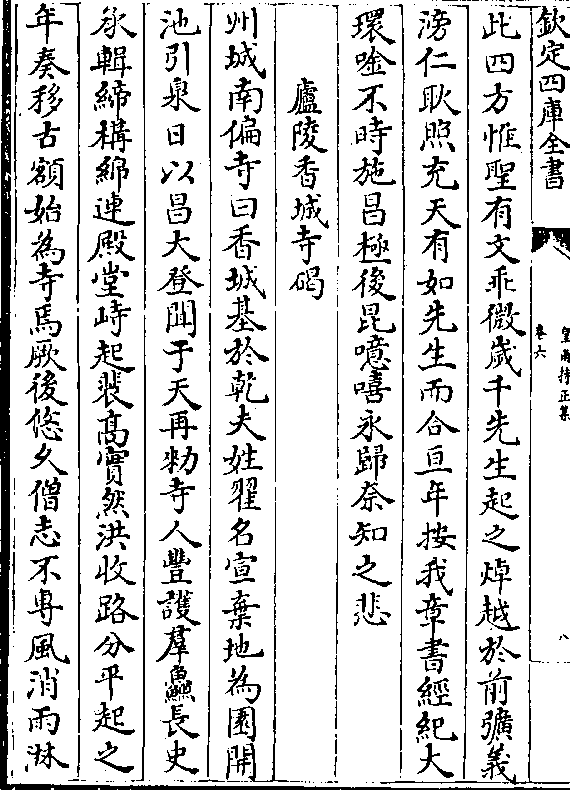 欽定四庫全書
皇甫持正集
卷六
八
此四方惟聖有文乖微歲千先生起之焯越於前彍義
滂仁耿照充天有如先生而合亘年按我章書經紀大
環唫不時施昌極後昆噫嘻永歸奈知之悲
廬陵香城寺碣
州城南偏寺曰香城基於乾夫姓翟名宣棄地為園開
池引泉日以昌大登聞于天再勑寺人豐護羣鱻長史
承輯締構綿連殿堂峙起裴高實然洪收路分平起之
年奏移古額始為寺焉厥後悠久僧志不專風消雨淋